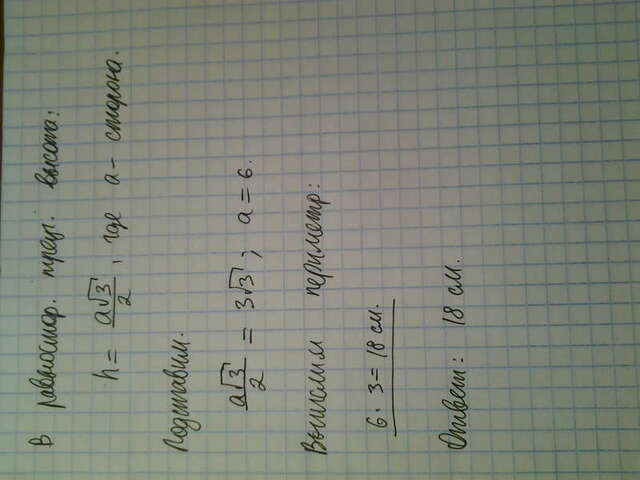 В равностор. треуг. высота:
h = a√3/2, где a - сторона.
Подставим.
a√3/2 = 3√3; a = 6.
Вычислим периметр:
6 · 3 = 18 см.
Ответ: 18 см.